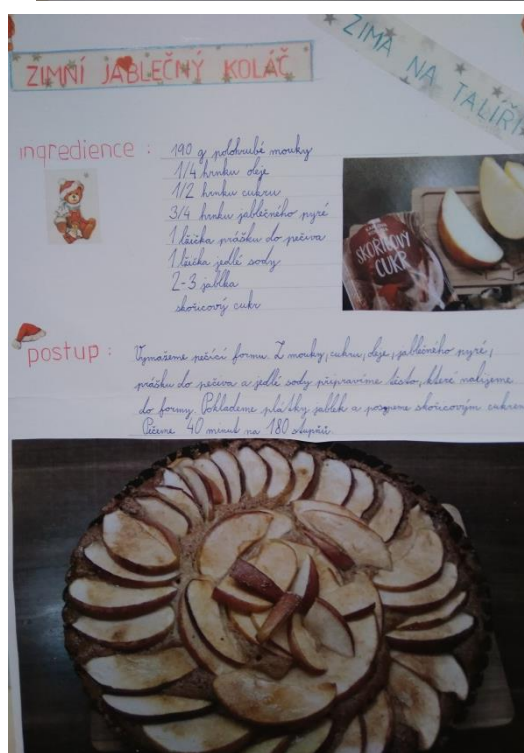 ZIMNÍ JABLEČNÝ KOLÁČ
ZIMA NA TALÍŘI
ingredience :
190 g polohrubé mouky
1/4 hrnku oleje
1/2 hrnku cukru
3/4 hrnku jablečného pyré
1 lžička prášku do pečiva
1 lžička jedlé sody
2-3 jablka
skořicový cukr
SKOŘICOVÝ
CUKR
postup :
Vymažeme pečící formu. Z mouky, cukru, oleje, jablečného pyré,
prášku do pečiva a jedlé sody připravíme těsto, které nalijeme
do formy. Poklademe plátky jablek a posypeme skořicovým cukrem
Pečeme 40 minut na 180 stupňů.